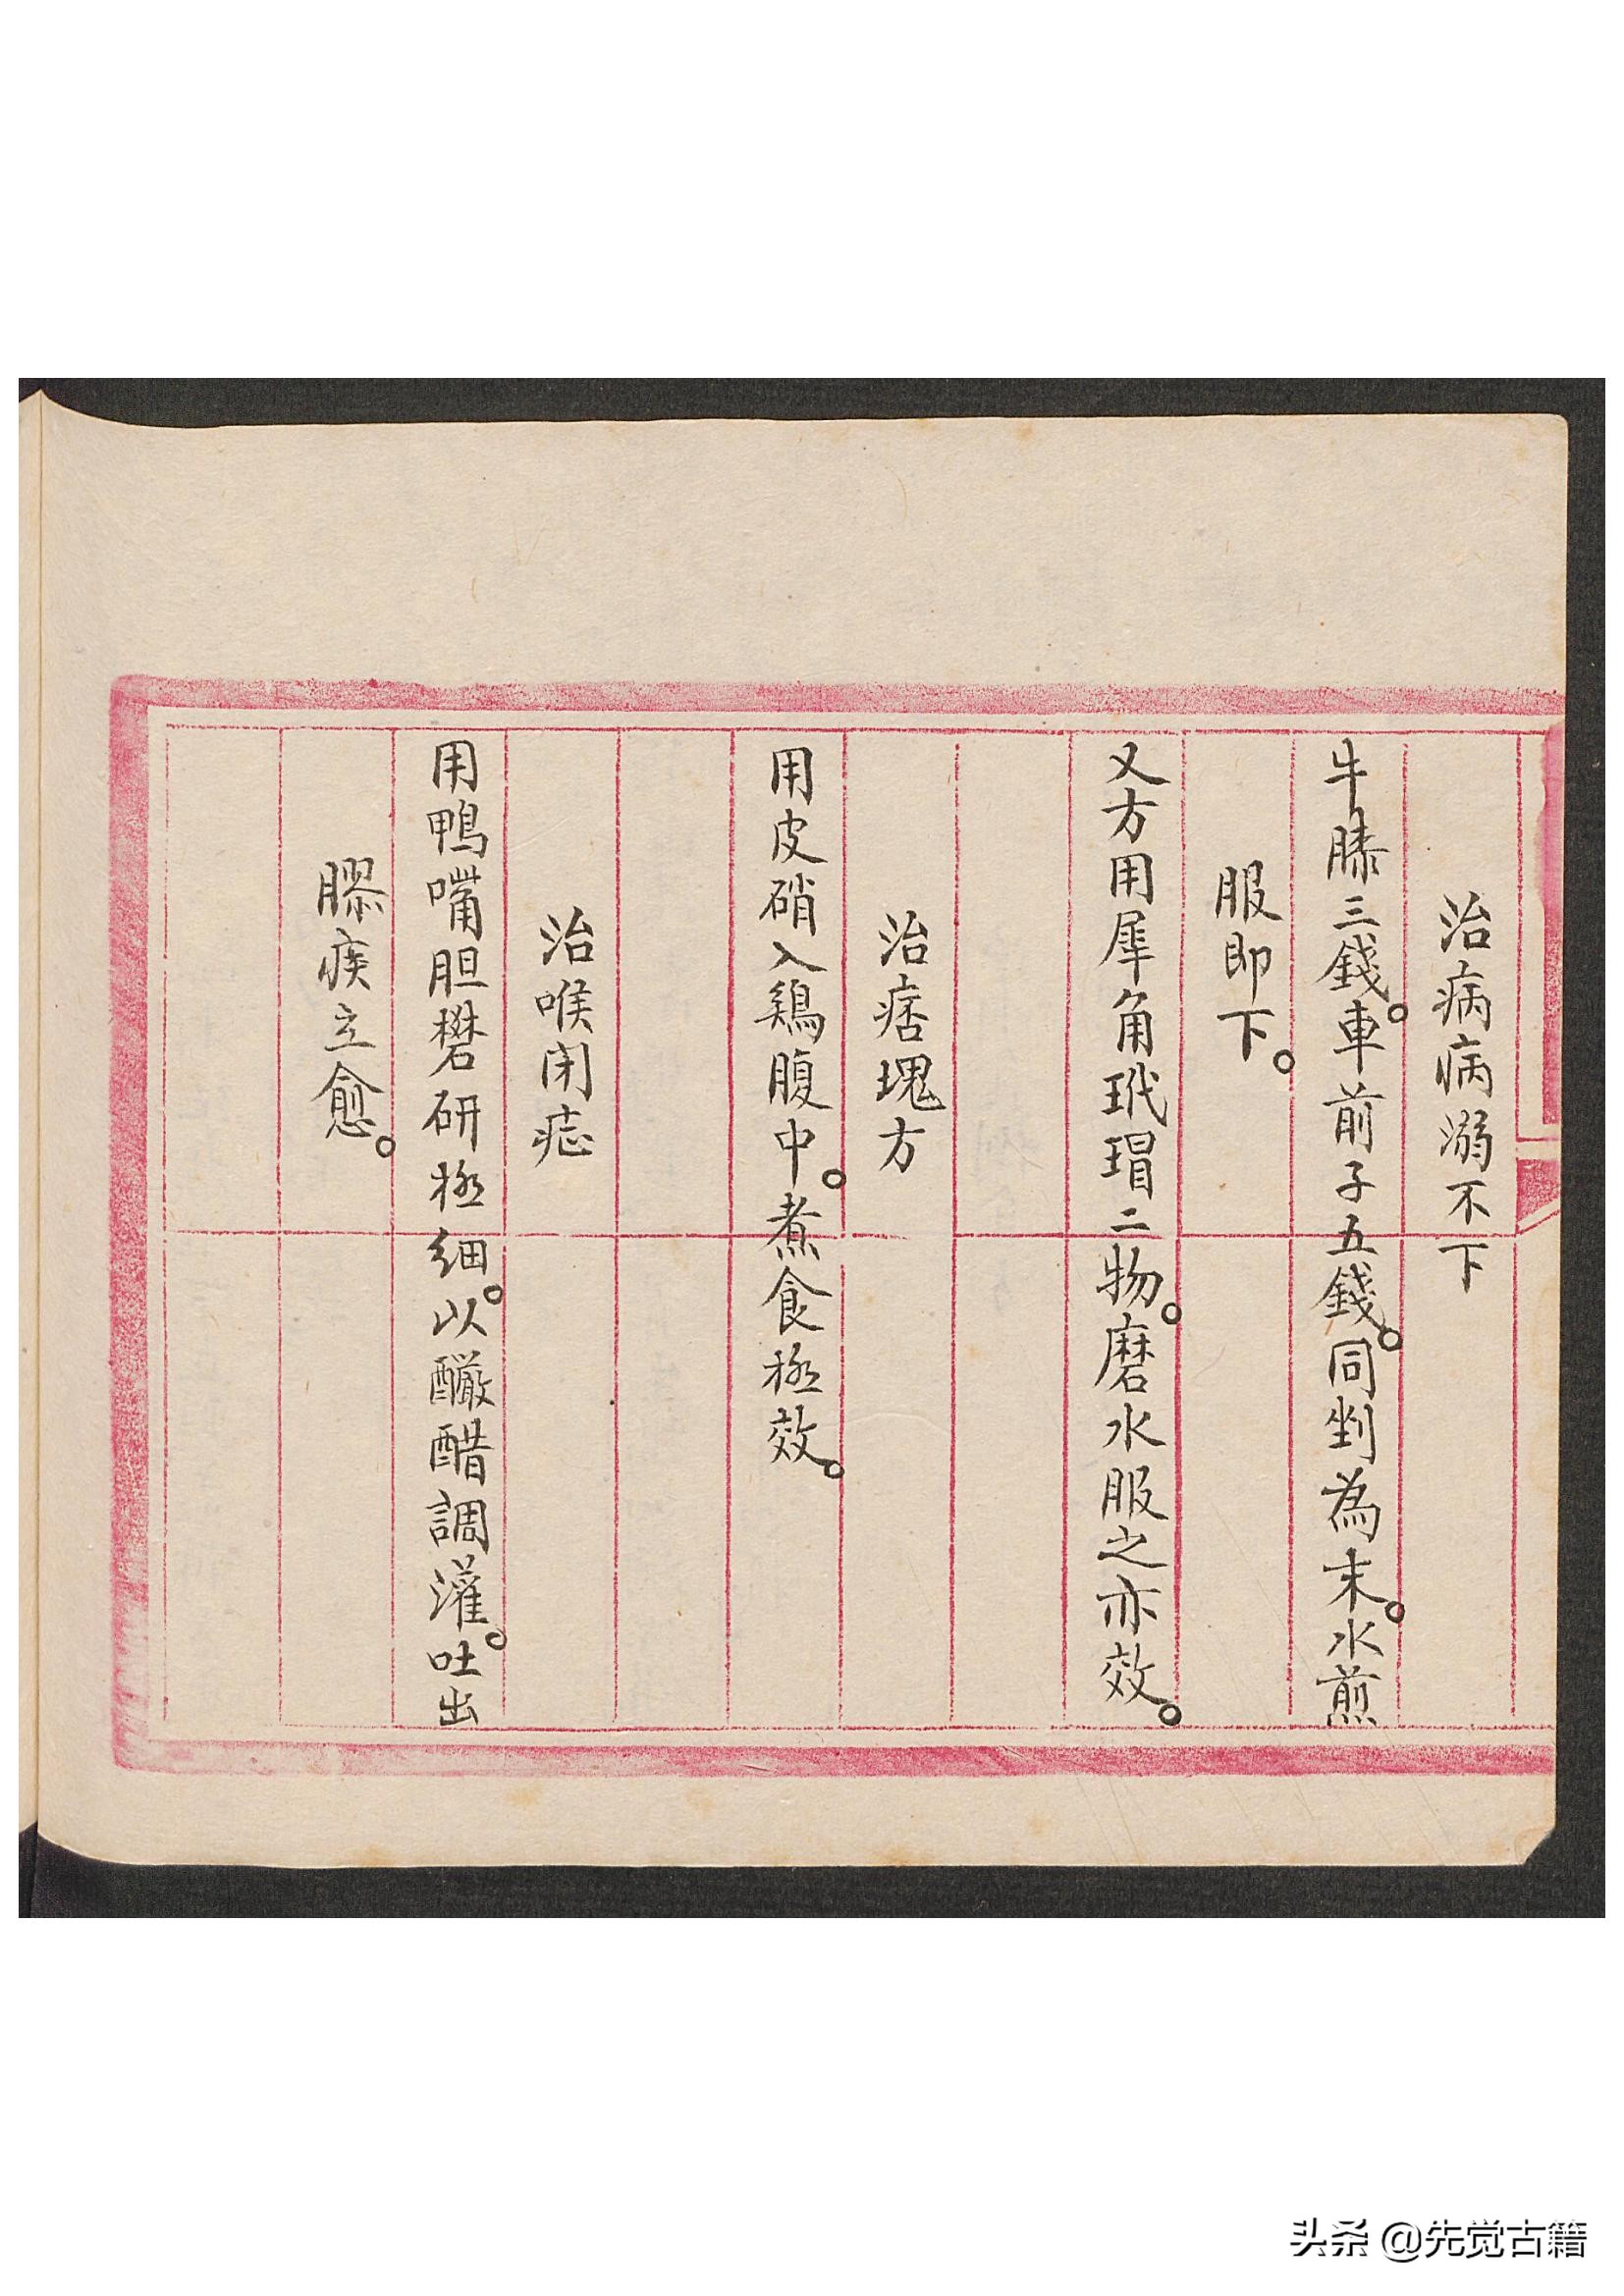 治病病溺不下
牛膝三錢。車前子五錢。同剉為末。水煎
服即下。
又方用犀角玳瑁二物。磨水服之亦效。
治痞塊方
用皮硝入鷄腹中。煮食極效。
治喉闭痣
用鴨嘴胆礬研極細。以釅醋調灌。吐出
膠痰立愈。
头条 @先觉古籍